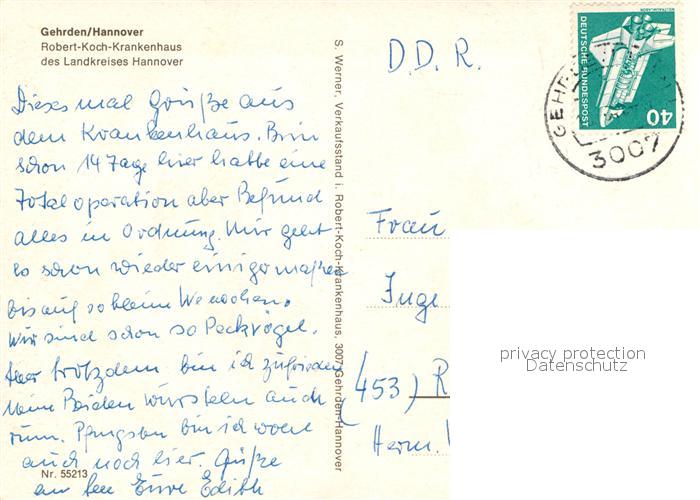 Gehrden/Hannover
Robert-Koch-Krankenhaus
des Landkreises Hannover
Dieses mal Grüße aus
dem Krankenhaus. Bin
schon 14 Tage hier hatte eine
Totaloperation aber Befund
alles in Ordnung. Mir geht
es schon wieder einigermaßen
bis auf so kleine Wehwehchen.
Wir sind schon so Pechvögel.
Aber trotzdem bin ich zufrieden
Meine Beiden wursteln auch
rum. Pfingsten bin ich wohl
auch noch hier. Grüße
an Eure Edith
Nr. 55213
S. Werner, Verkaufsstand i. Robert-Koch-Krankenhaus, 3007 Gehrden-Hannover
D.D.R.
WELTRAUMLABOR
DEUTSCHE BUNDESPOST
40
GEHR
3007
Frau
Inge
(453) R
Herm.
privacy protection
Datenschutz